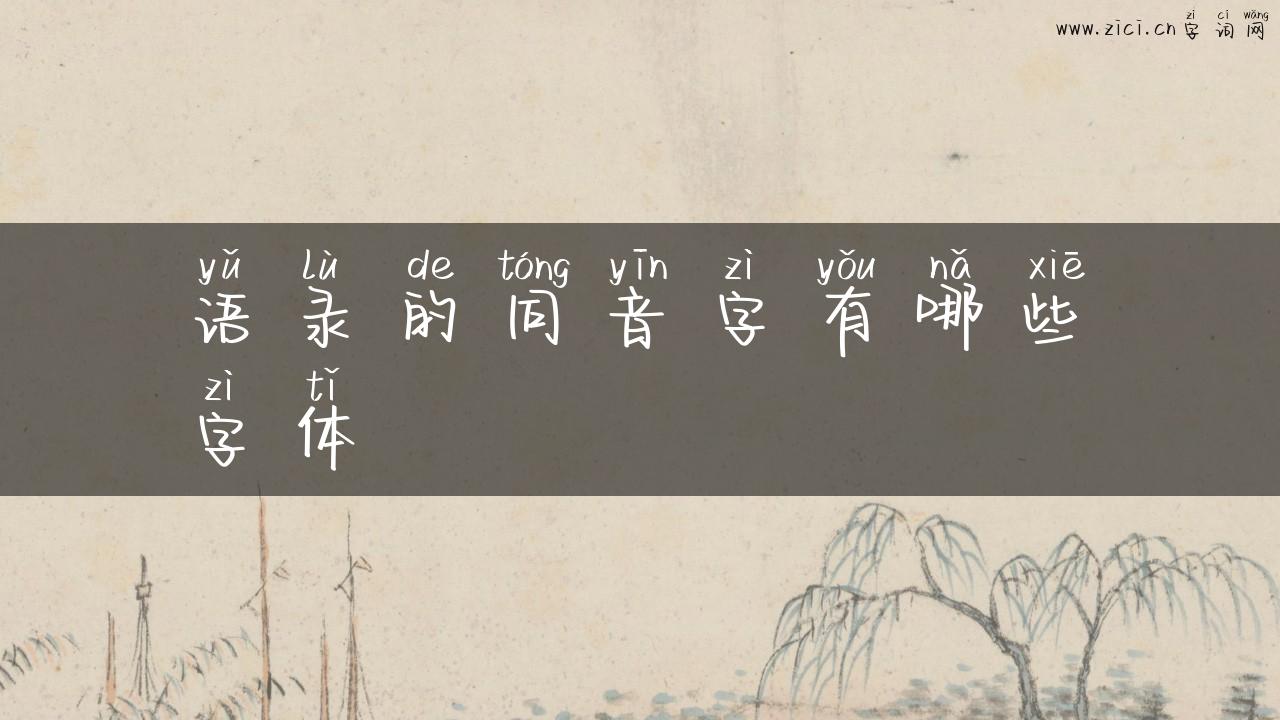 zì cí wǎng
www.zici.cn 字词网
yǔ lù de tóng yīn zì yǒu nǎ xiē
语录的同音字有哪些
zì tǐ
字体